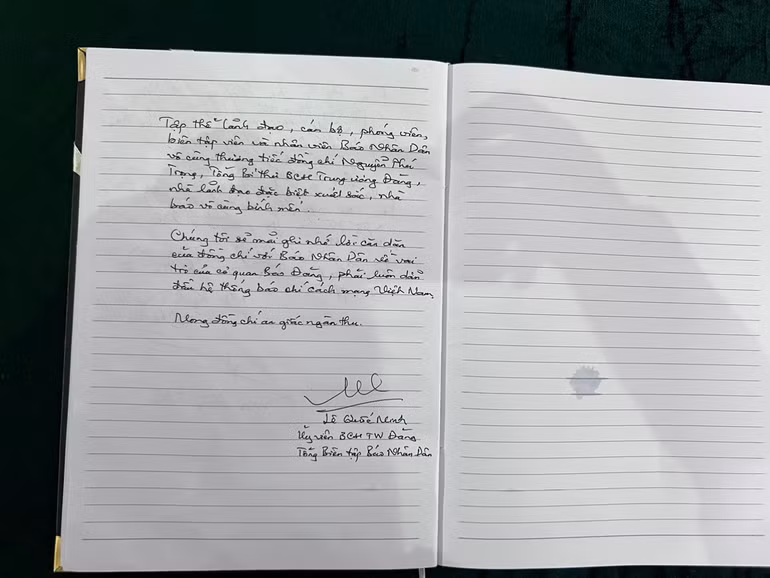 Tập thể lãnh đạo, cán bộ, phóng viên,
biên tập viên và nhân viên Báo Nhân Dân
vô cùng thương tiếc đồng chí Nguyễn Phú
Trọng, Tổng Bí thư BCH Trung ương Đảng,
nhà lãnh đạo đặc biệt xuất sắc, nhà
báo vô cùng kính mến.
Chúng tôi sẽ mãi ghi nhớ lời căn dặn
của đồng chí với Báo Nhân Dân về vai
trò của cơ quan Báo Đảng, phải luôn dẫn
đầu hệ thống báo chí cách mạng Việt Nam.
Mong đồng chí an giấc ngàn thu.
Lê Quốc Minh
Ủy viên BCH TW Đảng
Tổng Biên tập Báo Nhân Dân